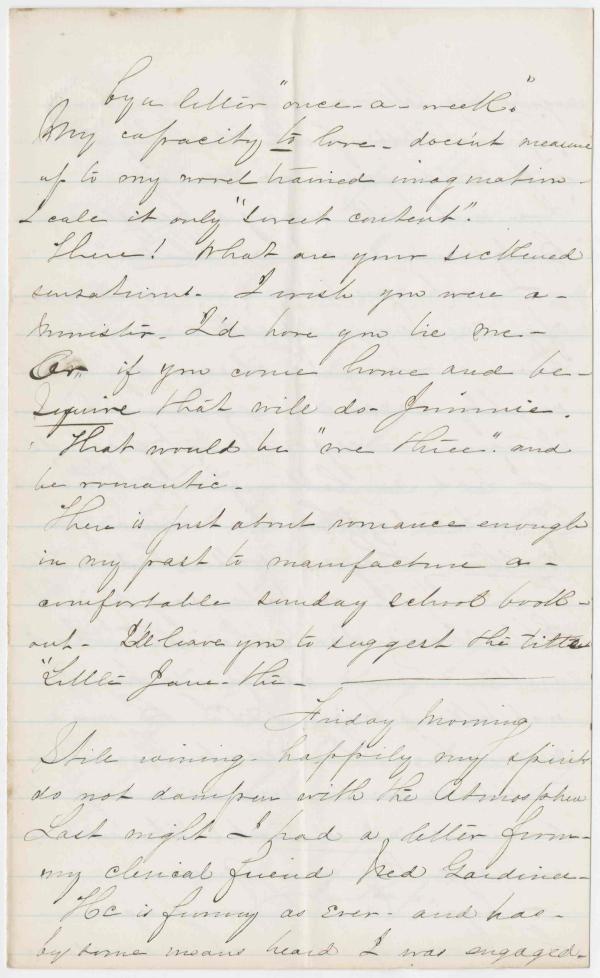 by a letter "once-a-week".
My capacity to love - doesn't measure
up to my novel trained imagination -
I call it only "sweet content".
There! What are your sickened
sensations. I wish you were a -
Minister. I'd have you tie me -
Or, if you come home and be -
Squire that will do - Jimmie.
That would be "we three". and
be romantic -
There is just about romance enough
in my past to manufacture a -
comfortable sunday school book -
out - I'll leave you to suggest the title
"Little Jane - the - ———
Friday Morning
Still raining - happily my spirits
do not dampen with the Atmosphere
Last night I had a letter from -
my clerical friend Ned Gardiner -
He is funny as ever - and has -
by some means heard I was engaged -